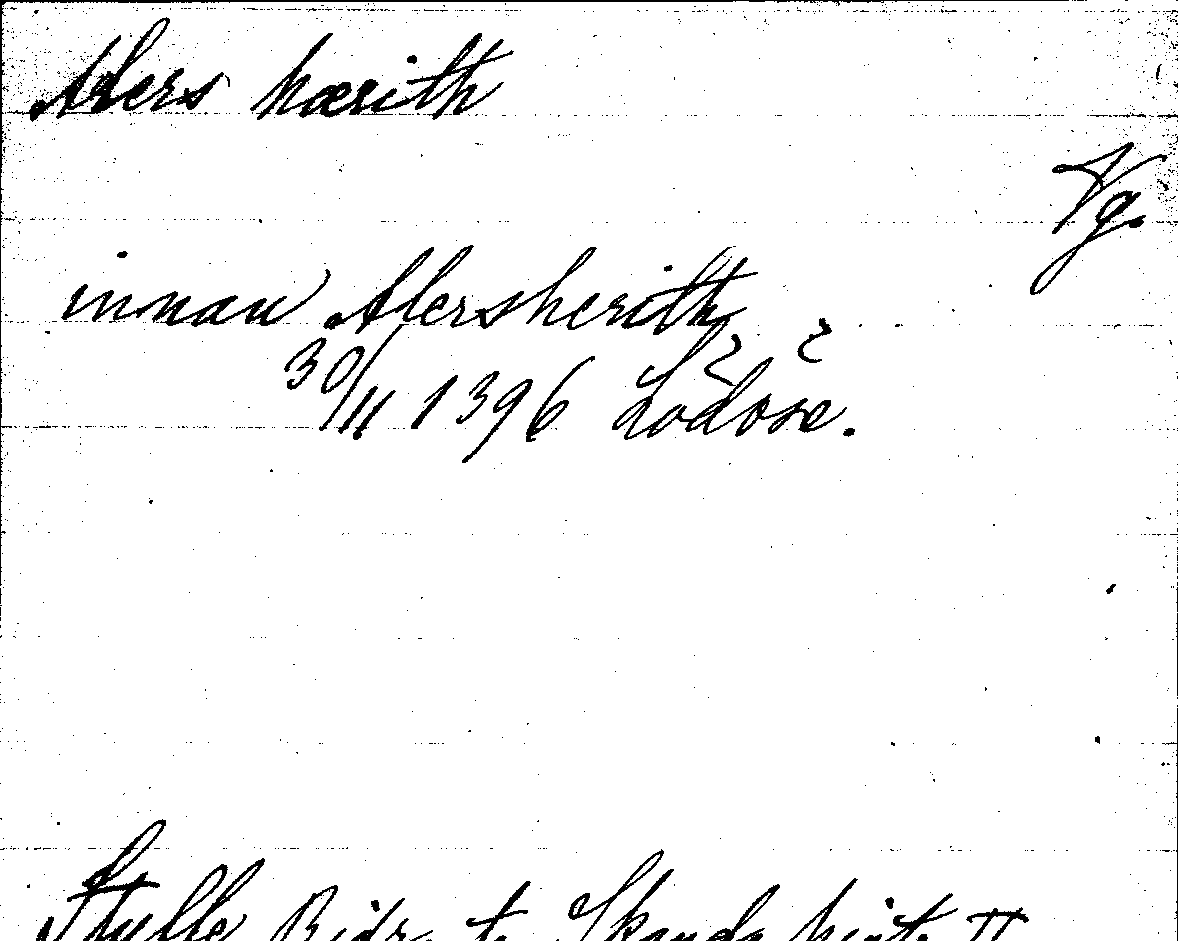 Alers hærith
Vg.
innan Alersherith
30/11 1396 Lodose.
Styffe Bidr. t. Skand. hist. II